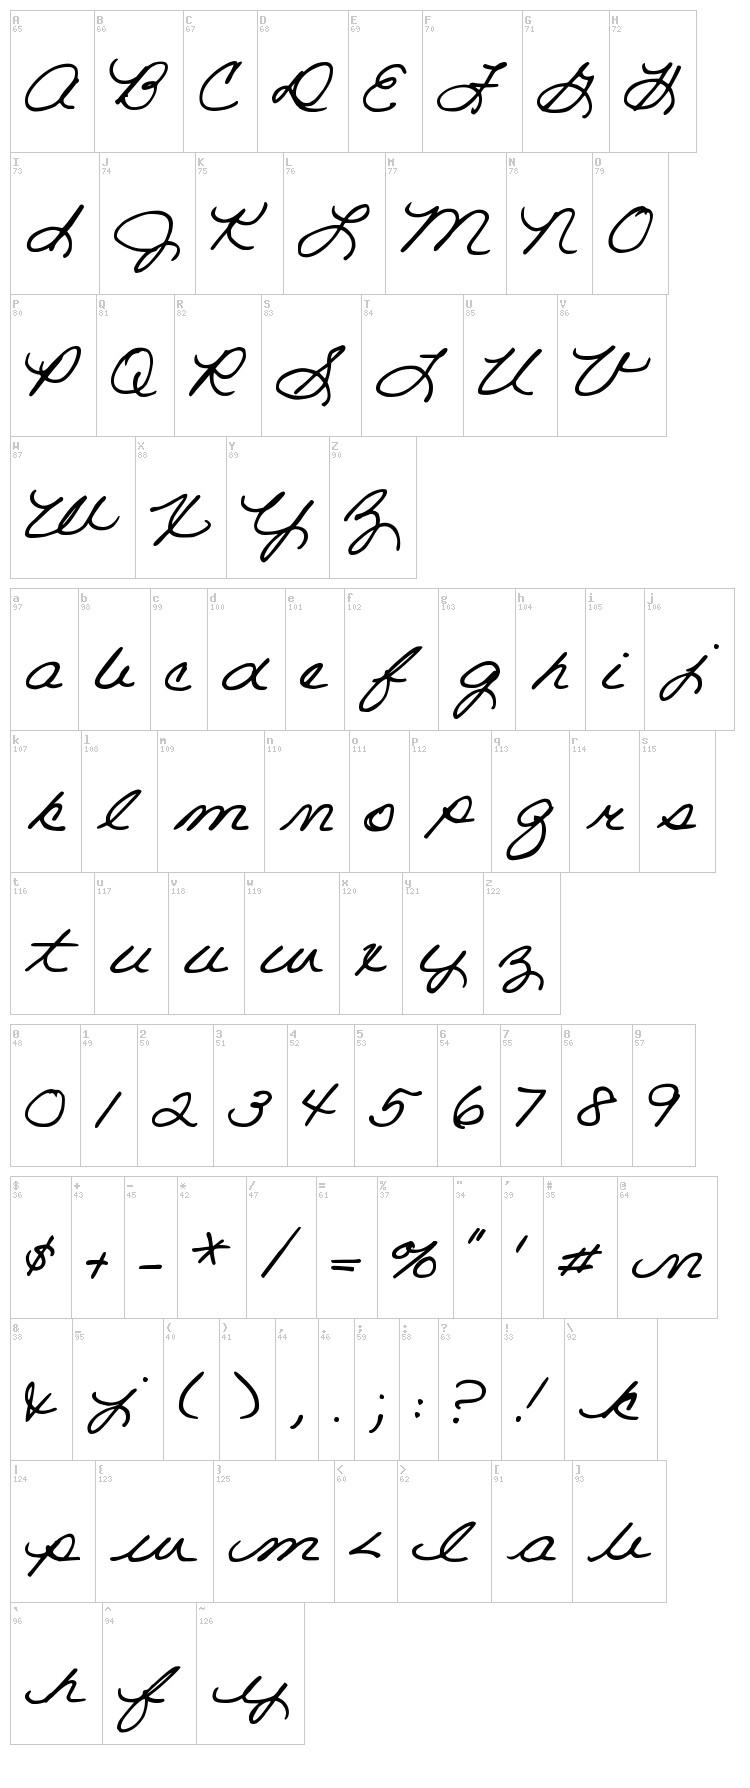 A B C D E F G H
65 66 67 68 69 70 71 72
A B C D E F G H
I J K L M N O
73 74 75 76 77 78 79
I J K L M N O
P Q R S T U V
80 81 82 83 84 85 86
P Q R S T U V
W X Y Z
87 88 89 90
W X Y Z
a b c d e f g h i j
97 98 99 100 101 102 103 104 105 106
a b c d e f g h i j
k l m n o p q r s
107 108 109 110 111 112 113 114 115
k l m n o p q r s
t u v w x y z
116 117 118 119 120 121 122
t u v w x y z
0 1 2 3 4 5 6 7 8 9
48 49 50 51 52 53 54 55 56 57
0 1 2 3 4 5 6 7 8 9
$ + - * / = % " ' # @
36 43 45 42 47 61 37 34 39 35 64
$ + - * / = % " ' # n
& _ ( ) , . ; : ? ! \
38 95 40 41 44 46 59 58 63 33 92
& j ( ) , . ; : ? ! k
| { } < > [ ]
124 123 125 60 62 91 93
p w m < l a b
` ^ ~
96 94 126
h f y